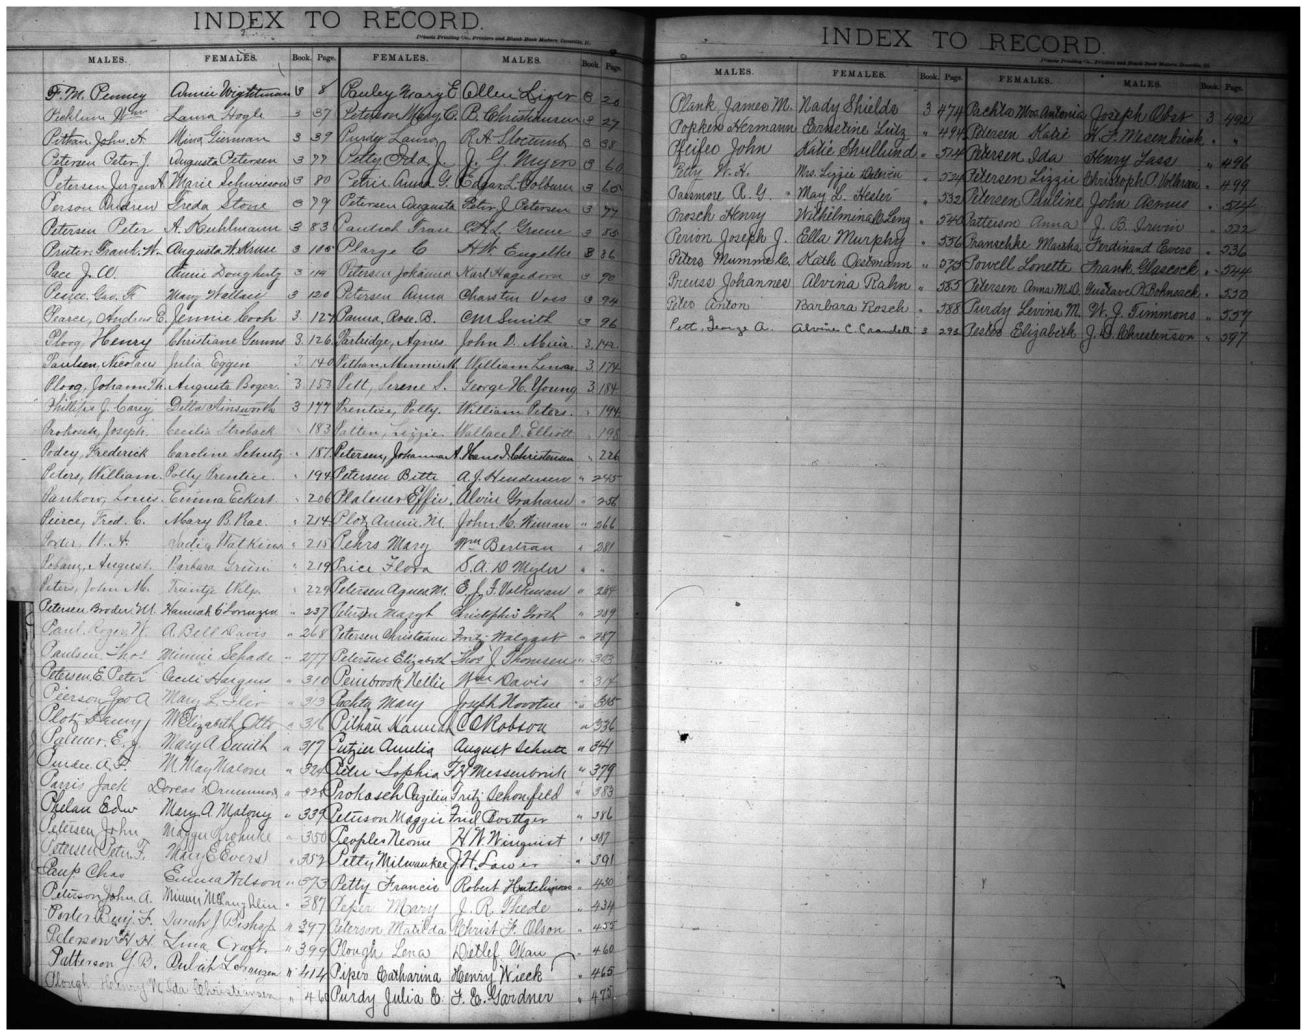 INDEX TO RECORD.
MALES. FEMALES. Book. Page. FEMALES. MALES. Book. Page.
F. M. Penney Annie Wightman 3 8 Pauley Mary E Allen Liger 3 20
Wm Laura Hogle 3 37 Peterson Mary C. B. Christensen 3 27
Pithan, John. A. Mina Gierman 3 39 Purdy Laura R. A. Slocumb 3 38
Petersen Peter J. Augusta Petersen 3 77 Petty Ida J J. G. Meyers 3 60
Petersen Jurgen A. Marie Schwieson 3 80 Petrie Anna G. Edgar L. Colburn 3 65
Person Andrew Greda Stone 3 79 Petersen Augusta Peter J. Petersen 3 77
Petersen Peter A. Kuhlmann 3 83 C. A. L. Greene 3 85
Frank W. Augusta W. Kruse 3 105 Plarge C H. W. Engelke 3 86
Pace J. W. Annie Dougherty 3 119 Petersen Johanna Karl Hagedorn 3 90
Pearce, Geo. F. Mary Wallace 3 120 Petersen Anna Charsten Voss 3 94
Pearce, Andrew E. Jennie Cook 3 124 Rose. B. C M Smith 3 96
Ploog, Henry Christiane Gumms 3 126 Partridge, Agnes John D. Muir 3 142
Paulsen, Nicolaus Julia Eggen 3 140 Pithan Minnie M. William Lenox 3 174
Ploog, Johann Th. Augusta Boger. 3 153 Pett, Serene S. George H. Young 3 184
Phillips J. Carey Della Ainsworth 3 177 Prentice, Polly. William Peters. " 194
Prokosch, Joseph. Cecilia Stroback " 183 Patten, Lizzie. Wallace D. Elliott " 198
Podey, Frederick Caroline Schutz " 187 Petersen, Johanna A. Hans J. Christensen " 226
Peters, William. Polly Prentice. " 194 Petersen Bitte A. J. Hendersen " 245
Pankow, Louis. Emma Eckert. " 206 Effie Alvin Graham " 256
Pierce, Fred. C. Mary B. Rae. " 214 Plotz Annie M. John H. Wiman " 266
Porter. W. A. Sadie Watkins " 215 Pehrs Mary Wm Bertran " 281
August. Barbara Griese " 219 Price Flora D. A. D Myler " "
Peters, John M. " 229 Petersen Agnes M. E. J. F. Volkman " 284
Petersen Broder M. Hannah C Lorenzen " 237 Petersen Margt Christopher Groth " 289
Paul Roger W. A. Bell Davis " 268 Petersen Christeane Fritz Walgast " 287
Paulsen Thos Minnie Schade " 277 Petersen Elizabeth Thos J Thomsen " 303
Petersen E. Peter Cecili Hargens " 310 Peinbrook Nellie Wm Davis " 314
Pierson Geo A Mary L. " 313 Pachta Mary Joseph Novotne " 315
Plotz Danny M Elizabeth Otto " 316 Pithan Hannah C C Robson " 336
Palmer. E. J. Mary A Smith " 317 Putzier Amelia August Schutt " 341
A. F. M May Malone " 324 Peter Sophia F. H Messenbrink " 379
Parris Jack Dorcas Drummond " 328 Prokasch Cazilia Fritz Schonfeld " 383
Phelan Edw Mary A Malony " 339 Peterson Maggie Fred Boettger " 386
Petersen, John Maggie Krohnke " 350 Peoples Neome H. W. Winquist " 387
Petersen Peter F. Mary E Evers " 352 Petty Milwaukee J. H. Lower " 391
Paup Chas Emma Wilson " 373 Petty Francis Robert Hutchinson " 430
Peterson John, A. Minnie McLaughlin " 387 Peper Mary J. R. Thede " 434
Porter Benj. F. Sarah J Bishop " 397 Peterson Matilda Christ F. Olson " 455
Peterson H. H. Lina Craft " 399 Plough Lena Detlef Glau " 460
Patterson G. D. Beulah Lorenzen " 414 Piper Catharina Henry Wieck " 465
Plough Henry N. Ida Christiansen " 460 Purdy Julia E. F. E. Gardner " 475
INDEX TO RECORD.
MALES. FEMALES. Book. Page. FEMALES. MALES. Book. Page.
Plank James M. Nady Shields 3 474 Pachta Mrs Antonia Joseph Obst 3 492
Popken Hermann Ernestine Lutz " 494 Petersen Katie H. F. Meisenbrink " "
Pfeifer John Katie Shullund " 514 Petersen Ida Henry Lass " 496
Petty W. H. Mrs. Lizzie " 524 Petersen Lizzie Christoph A Volkman " 499
Pasmore R. G. May L. Hesler " 532 Petersen Pauline John Asmus " 514
Prosch Henry Wilhelmina C. Leng " 540 Patterson Anna J. B. Irwin " 522
Perion Joseph J. Ella Murphy " 556 Franschke Martha Ferdinand Evers " 536
Peters Mumme C. Kath Oestmann " 575 Powell Lonette Frank Glascock " 544
Preuss Johannes Alvina Rahn " 585 Petersen Anna M. D. Gustave A Bohnsack " 550
Peter Anton Barbara Rosch " 588 Purdy Levina M. W. J. Timmons " 557
Pett, George A. Alvine C Crandell 3 292 Pester Elizabeth J. D. Christenson " 597